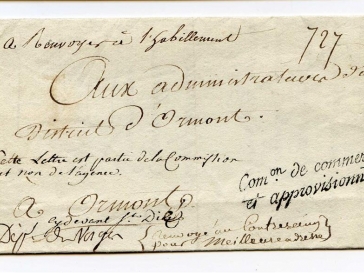 a Renvoyer à l'habillement
727
Aux administrateurs du
District d'Ormont.
Cette Lettre est partie de la Commission
et non de l'agence.
Com.on de commer
et approvisionn
A Ormont
cydevant St. Diez
Déff. des Vosges
renvoyé au Contreseing
pour Meilleure adresse